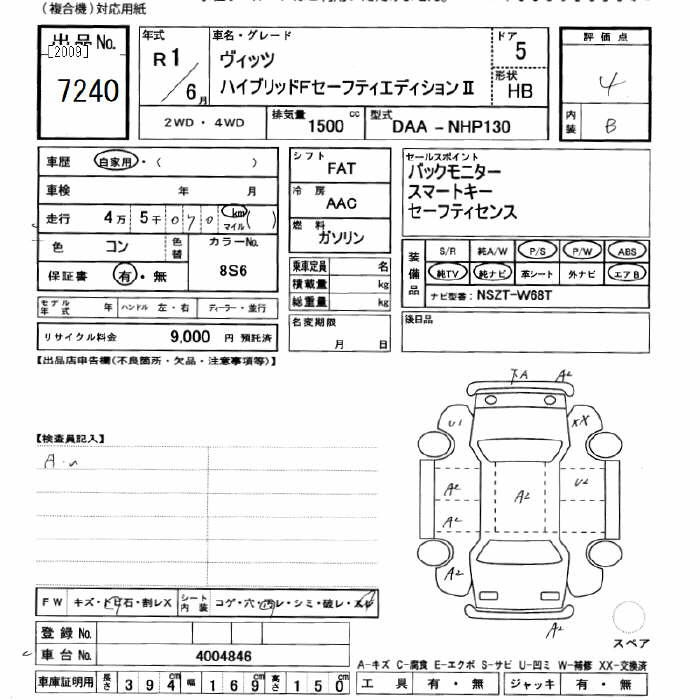 (複合機)対応用紙
出品No.
[2009]
7240
年式
R1/6月
車名・グレード
ヴィッツ
ハイブリッドFセーフティエディションⅡ
ドア
5
形状
HB
評価点
4
内装
B
2WD・4WD
排気量 1500 cc
型式 DAA-NHP130
車歴 自家用・( )
車検 年 月
走行 4万 5千 0 7 0 km マイル ( )
色 コン 色替
カラーNo.
8S6
保証書 有・無
シフト
FAT
冷房
AAC
燃料
ガソリン
乗車定員 名
積載量 kg
総重量 kg
セールスポイント
バックモニター
スマートキー
セーフティセンス
装備品
S/R 純A/W P/S P/W ABS
純TV 純ナビ 革シート 外ナビ エアB
ナビ型番: NSZT-W68T
モデル年式 年 ハンドル 左・右 ディーラー・並行
リサイクル料金 9,000 円 預託済
名変期限
月 日
後日品
【出品店申告欄(不良箇所・欠品・注意事項等)】
【検査員記入】
下A A2
U1 XX
A2 A2 U2
A2
A2
A2
FW キズ・トビ石・割レX シート内装 コゲ・穴・汚レ・シミ・破レ・スレ
登録No.
車台No. 4004846
車庫証明用 長さ 394cm 幅 169cm 高さ 150cm
スペア
A-キズ C-腐食 E-エクボ S-サビ U-凹ミ W-補修 XX-交換済
工具 有・無 ジャッキ 有・無